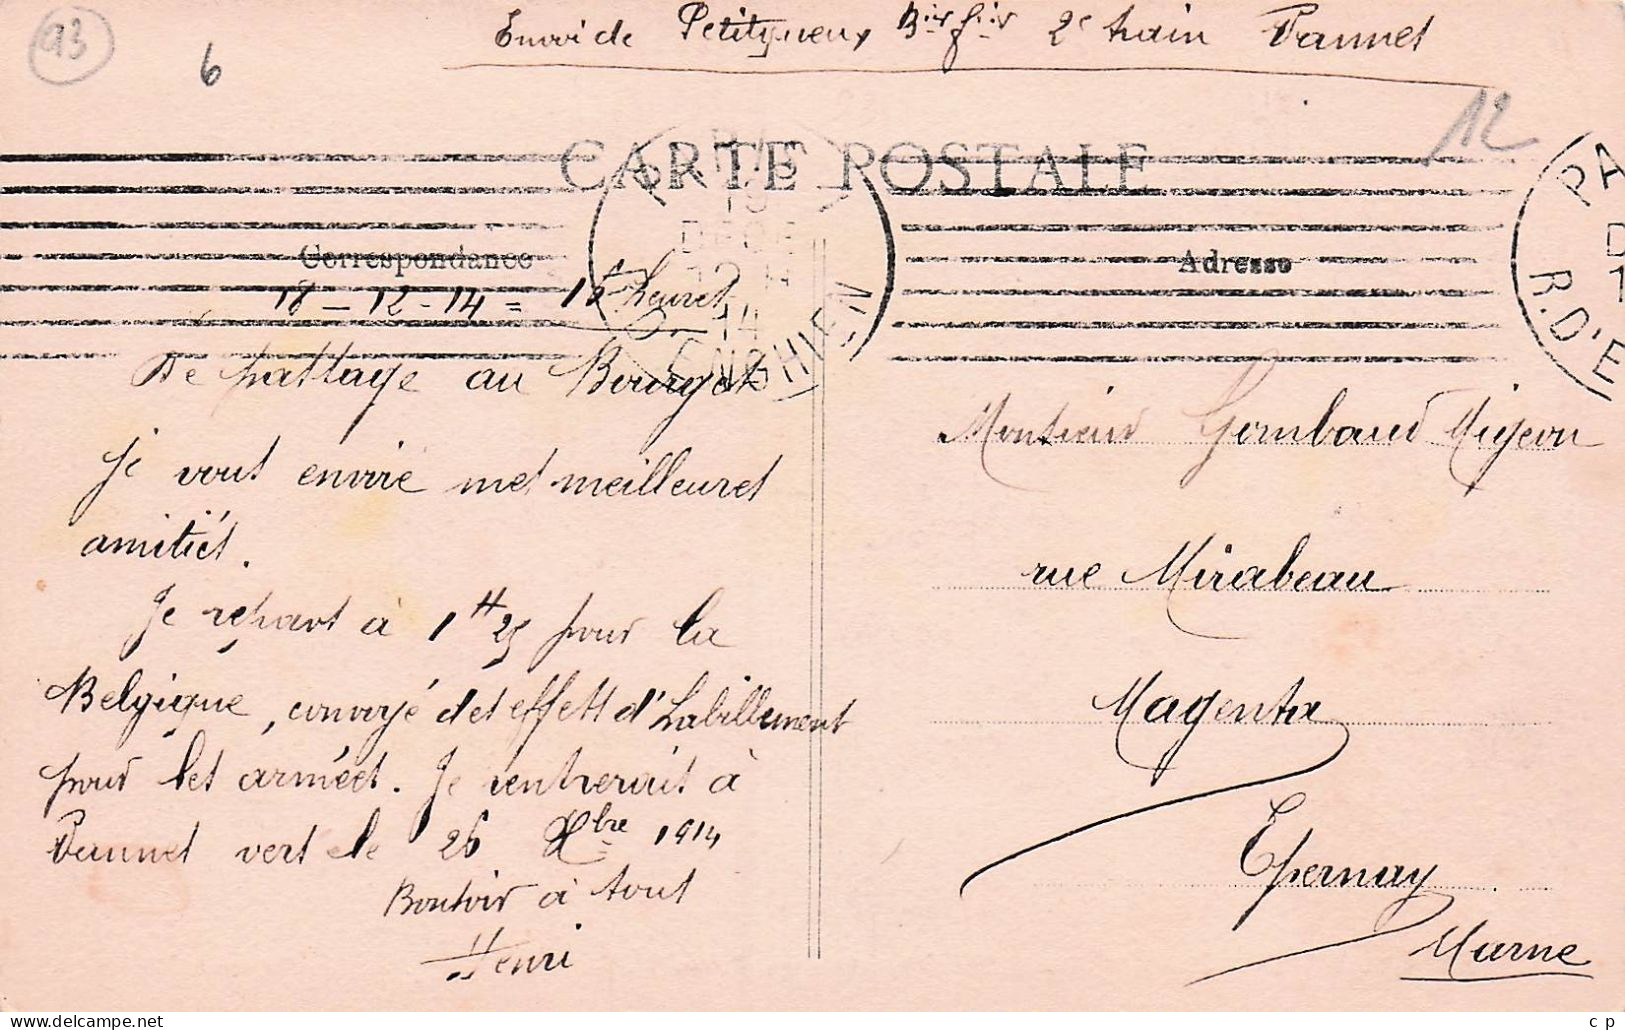 93
6
Envoi de Petitqueux B 2e train Vannes
12
CARTE POSTALE
Correspondance
Adresse
DECE
14
ENGHIEN
PA
R. D'E
18 - 12 - 14 = heures
De passage au Bourget
je vous envoie mes meilleures
amitiés.
Je repars à 1H25 pour la
Belgique, convoyé des effets d'habillement
pour les armées. Je rentrerais à
Vannes vers le 26 Xbre 1914
Bonsoir à tous
Henri
Monsieur Gombaud Migeon
rue Mirabeau
Magenta
Epernay
Marne
c p